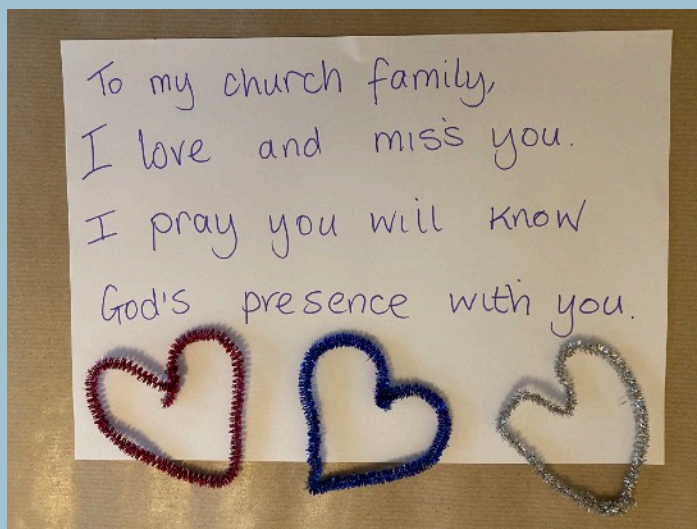 To my church family,
I love and miss you.
I pray you will know
God's presence with you.